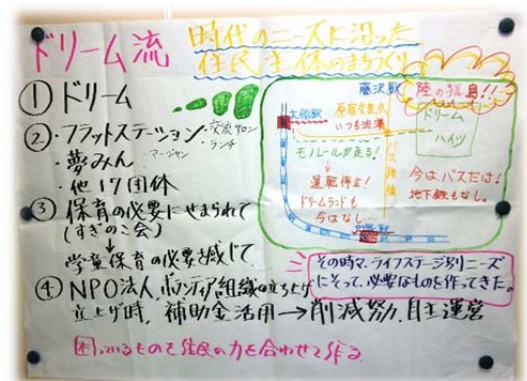 ドリーム流
時代のニーズに沿った
住民主体のまちづくり
① ドリーム
②・フラットステーション・交流サロン
・ランチ
・夢みん
マージャン
・他17団体
③ 保育の必要にせまられて
(すぎのこ会)
↓
学童保育の必要を感じて
④ NPO法人、ボランティア組織の立ち上げ
立上げ時、補助金活用→削減努力、自主運営
困っているものを住民の力を合わせて作る
藤沢駅
陸の孤島!!
ドリーム
ハイツ
大船駅
原宿交差点
いつも渋滞
モノレールが走る!
↓
運転停止!
ドリームランドも
今はなし
バス路線
今はバスだけ!
地下鉄もなし。
その時々、ライフステージ別ニーズ
にそって、必要なものを作ってきた。